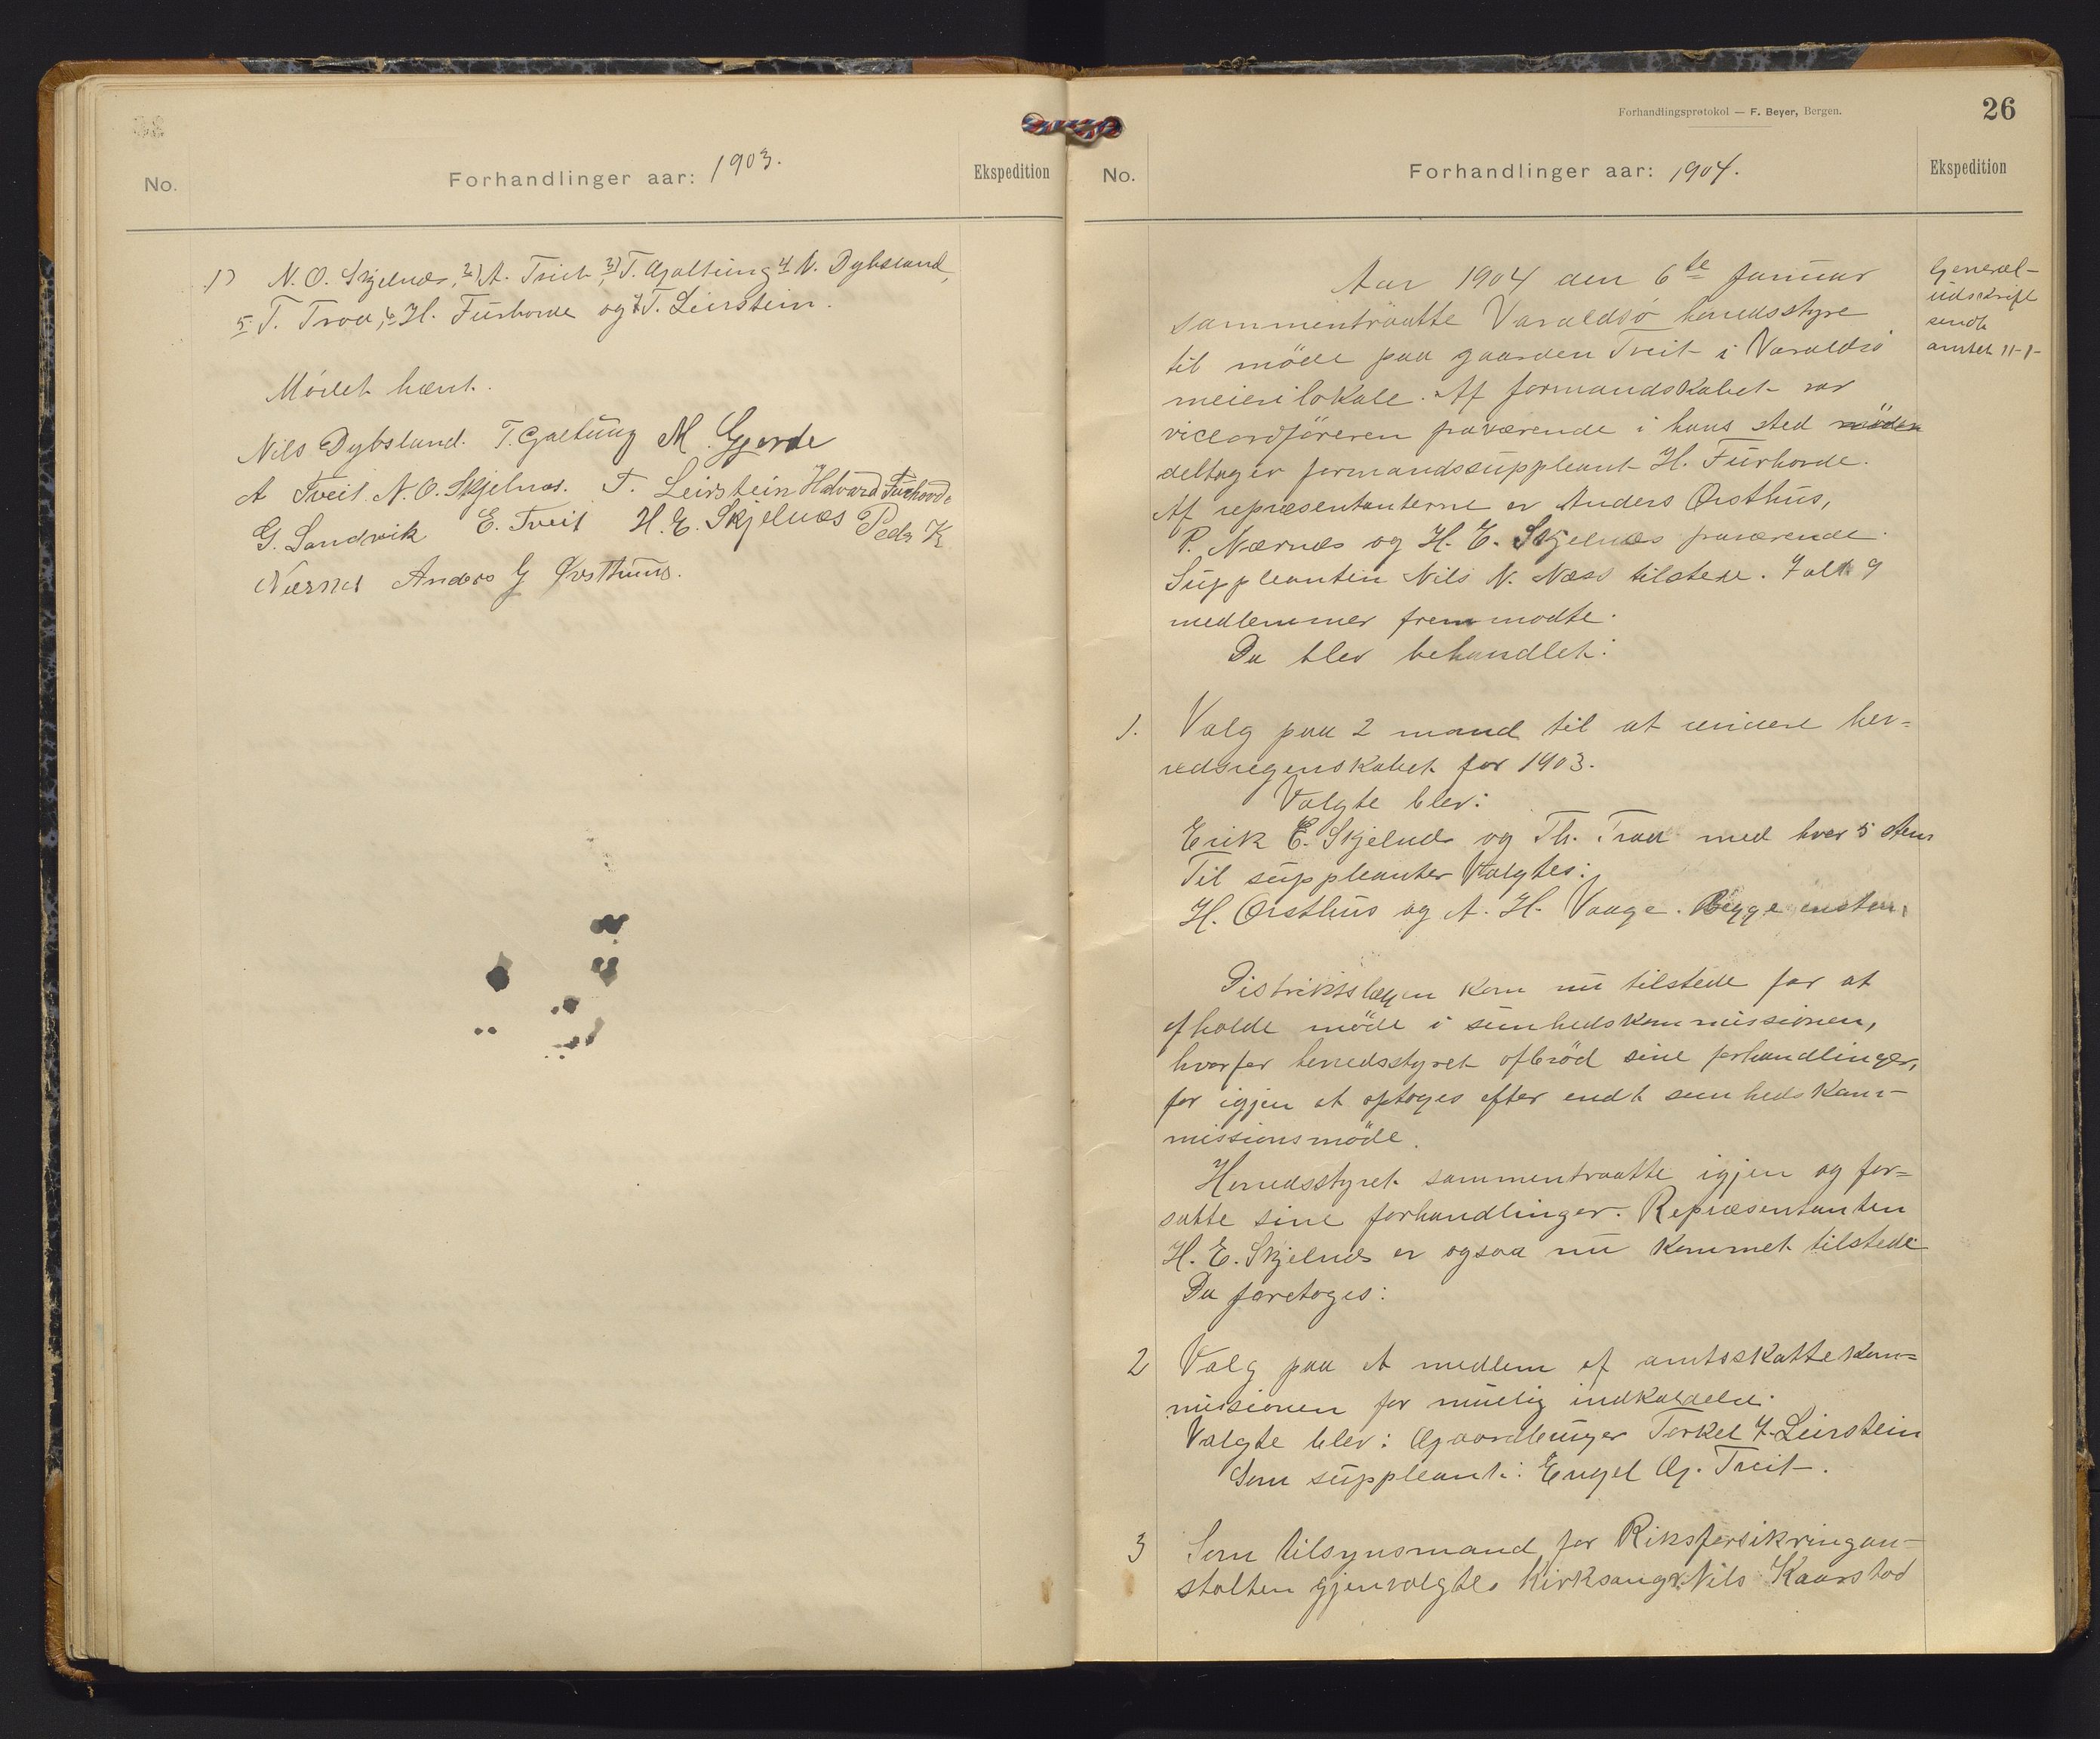 No.
Forhandlinger aar: 1903.
Ekspedition
1) N. O. Skjelnæs, 2) A. Tveit, 3) T. Gjaltung 4 N. Dybsland,
5 T. Traa, 6 H. Furhovde og 7 T. Leirstein.
Mødet hævt.
Nils Dybsland. T. Gjaltung M. Gjerde
A Tveit. N. O. Skjelnæs. T. Leirstein Halvard Furhovde
G. Sandvik E. Tveit H. E. Skjelnæs Peder K
Nærnes Anders G Øvsthuus.
Forhandlingsprotokol — F. Beyer, Bergen.
26
No.
Forhandlinger aar: 1904.
Ekspedition
Aar 1904 den 6te Januar
sammentraatte Varaldsö herredsstyre
til möde paa gaarden Tveit i Varaldsö
meierilokale. Af formandskabet var
viceordföreren paværende i hans sted möder
deltager formandssuppleant H. Furhovde.
Af repræsentanterne er Anders Øvsthus,
P. Nærnes og H. E. Skjelnæs paværende.
Suppleanten Nils N. Næss tilstede. Ialt 9
medlemmer fremmødte.
Da blev behandlet:
General-
udskrift
sendt
amtet 11-1-
1. Valg paa 2 mand til at revidere her-
redsregnskabet for 1903.
Valgte blev:
Erik E. Skjelnæs og Th. Traa med hver 5 stem
Til suppleanter valgtes:
H. Øvsthus og A. H. Vaage. Begge enstem.
Distriktslægen kom nu tilstede for at
afholde möde i sunhedskommissionen,
hvorfor herredsstyret afbröd sine forhandlinger,
for igjen at optages efter endt sunhedskom-
missionsmöde.
Herredsstyret sammentraatte igjen og for-
satte sine forhandlinger. Repræsentanten
H. E. Skjelnæs er ogsaa nu kommet tilstede
Da foretoges:
2 Valg paa et medlem af amtsskattekom-
missionen for mulig indkaldelse.
Valgte blev: Gaardbruger Torkel T. Leirstein
Som suppleant: Engel G. Tveit.
3 Som tilsynsmand for Riksforsikringsan-
stalten gjenvalgtes kirksanger Nils Kaarstad